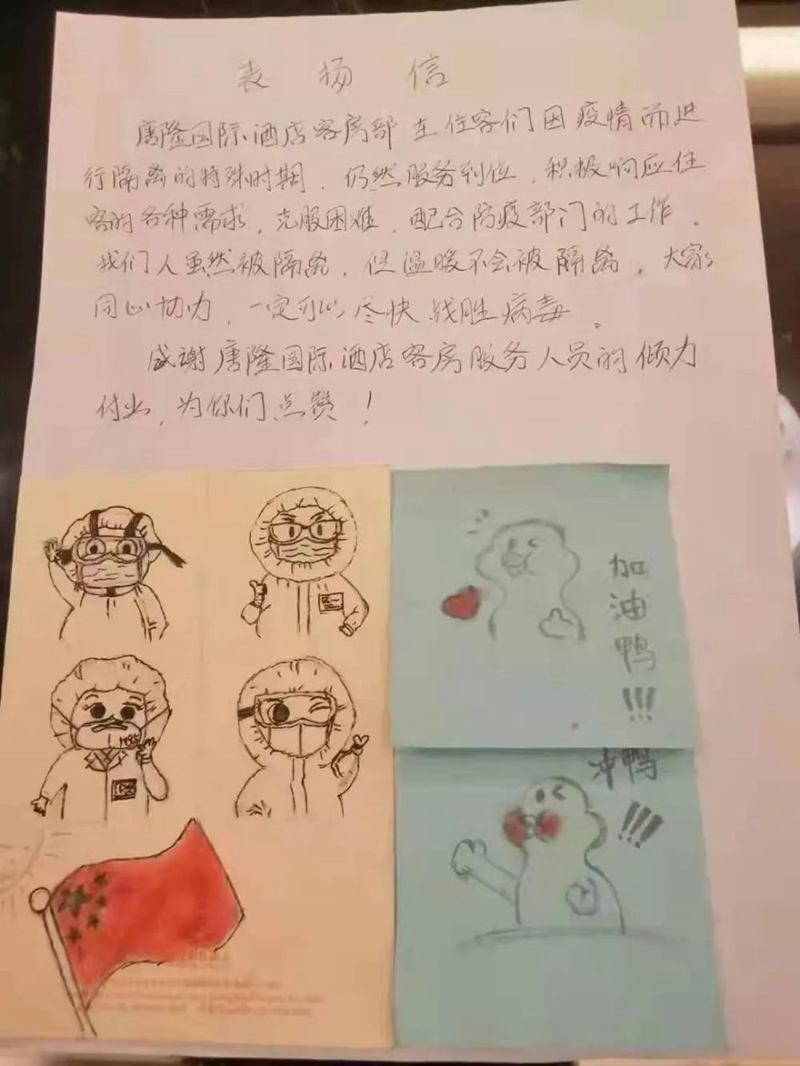 表扬信
唐隆国际酒店客房部在住客们因疫情而进
行隔离的特殊时期，仍然服务到位，积极响应住
客的各种需求，克服困难，配合防疫部门的工作。
我们人虽然被隔离，但温暖不会被隔离，大家
同心协力，一定可以尽快战胜病毒。
感谢唐隆国际酒店客房服务人员的倾力
付出，为你们点赞！
加油鸭!!!
冲鸭!!!